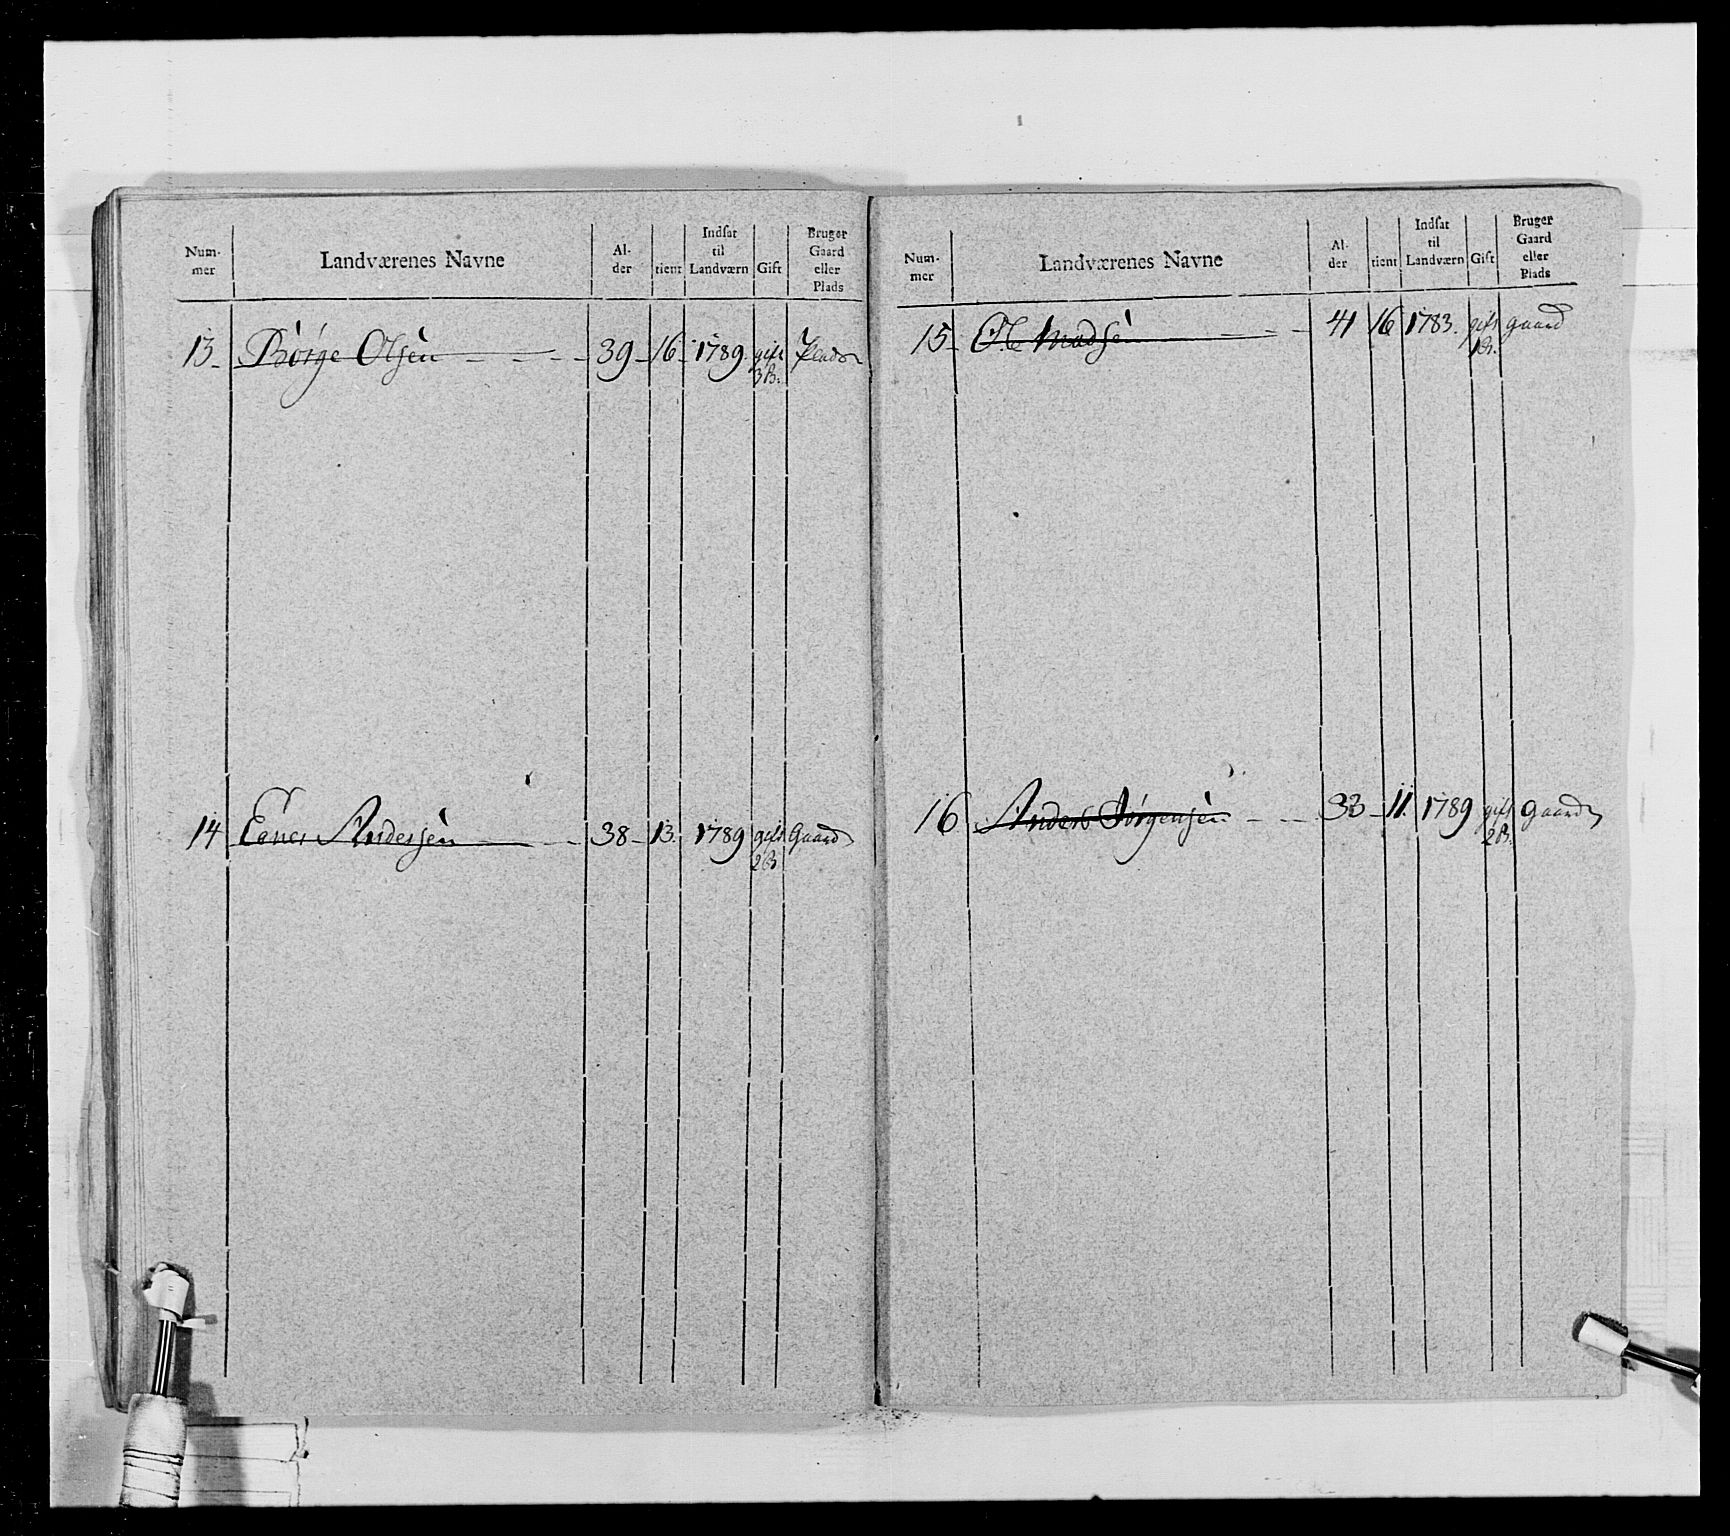 Num- mer Landværenes Navne Al- der tient Indsat til Landværn Gift Bruger Gaard eller Plads
13. Børge Olsen 39 16 1789. gift Plads
3 B.
14 Ebner Andersen 38 13. 1789 gift Gaard
2 B
Num- mer Landværenes Navne Al- der tient Indsat til Landværn Gift Bruger Gaard eller Plads
15 Ole Madsen 41 16 1783. gift gaard
1 B.
16 Anders Jørgensen 33 11. 1789 gift Gaard
2 B.